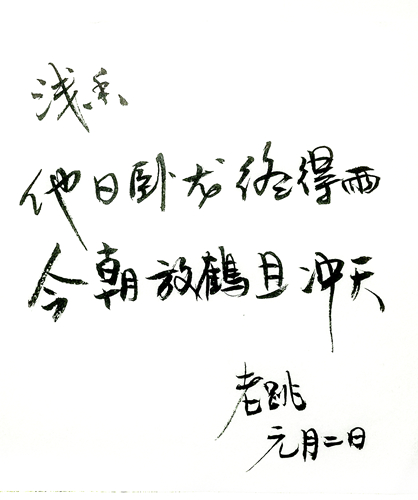 浅禾
他日卧龙终得雨
今朝放鹤且冲天
老跳
元月二日